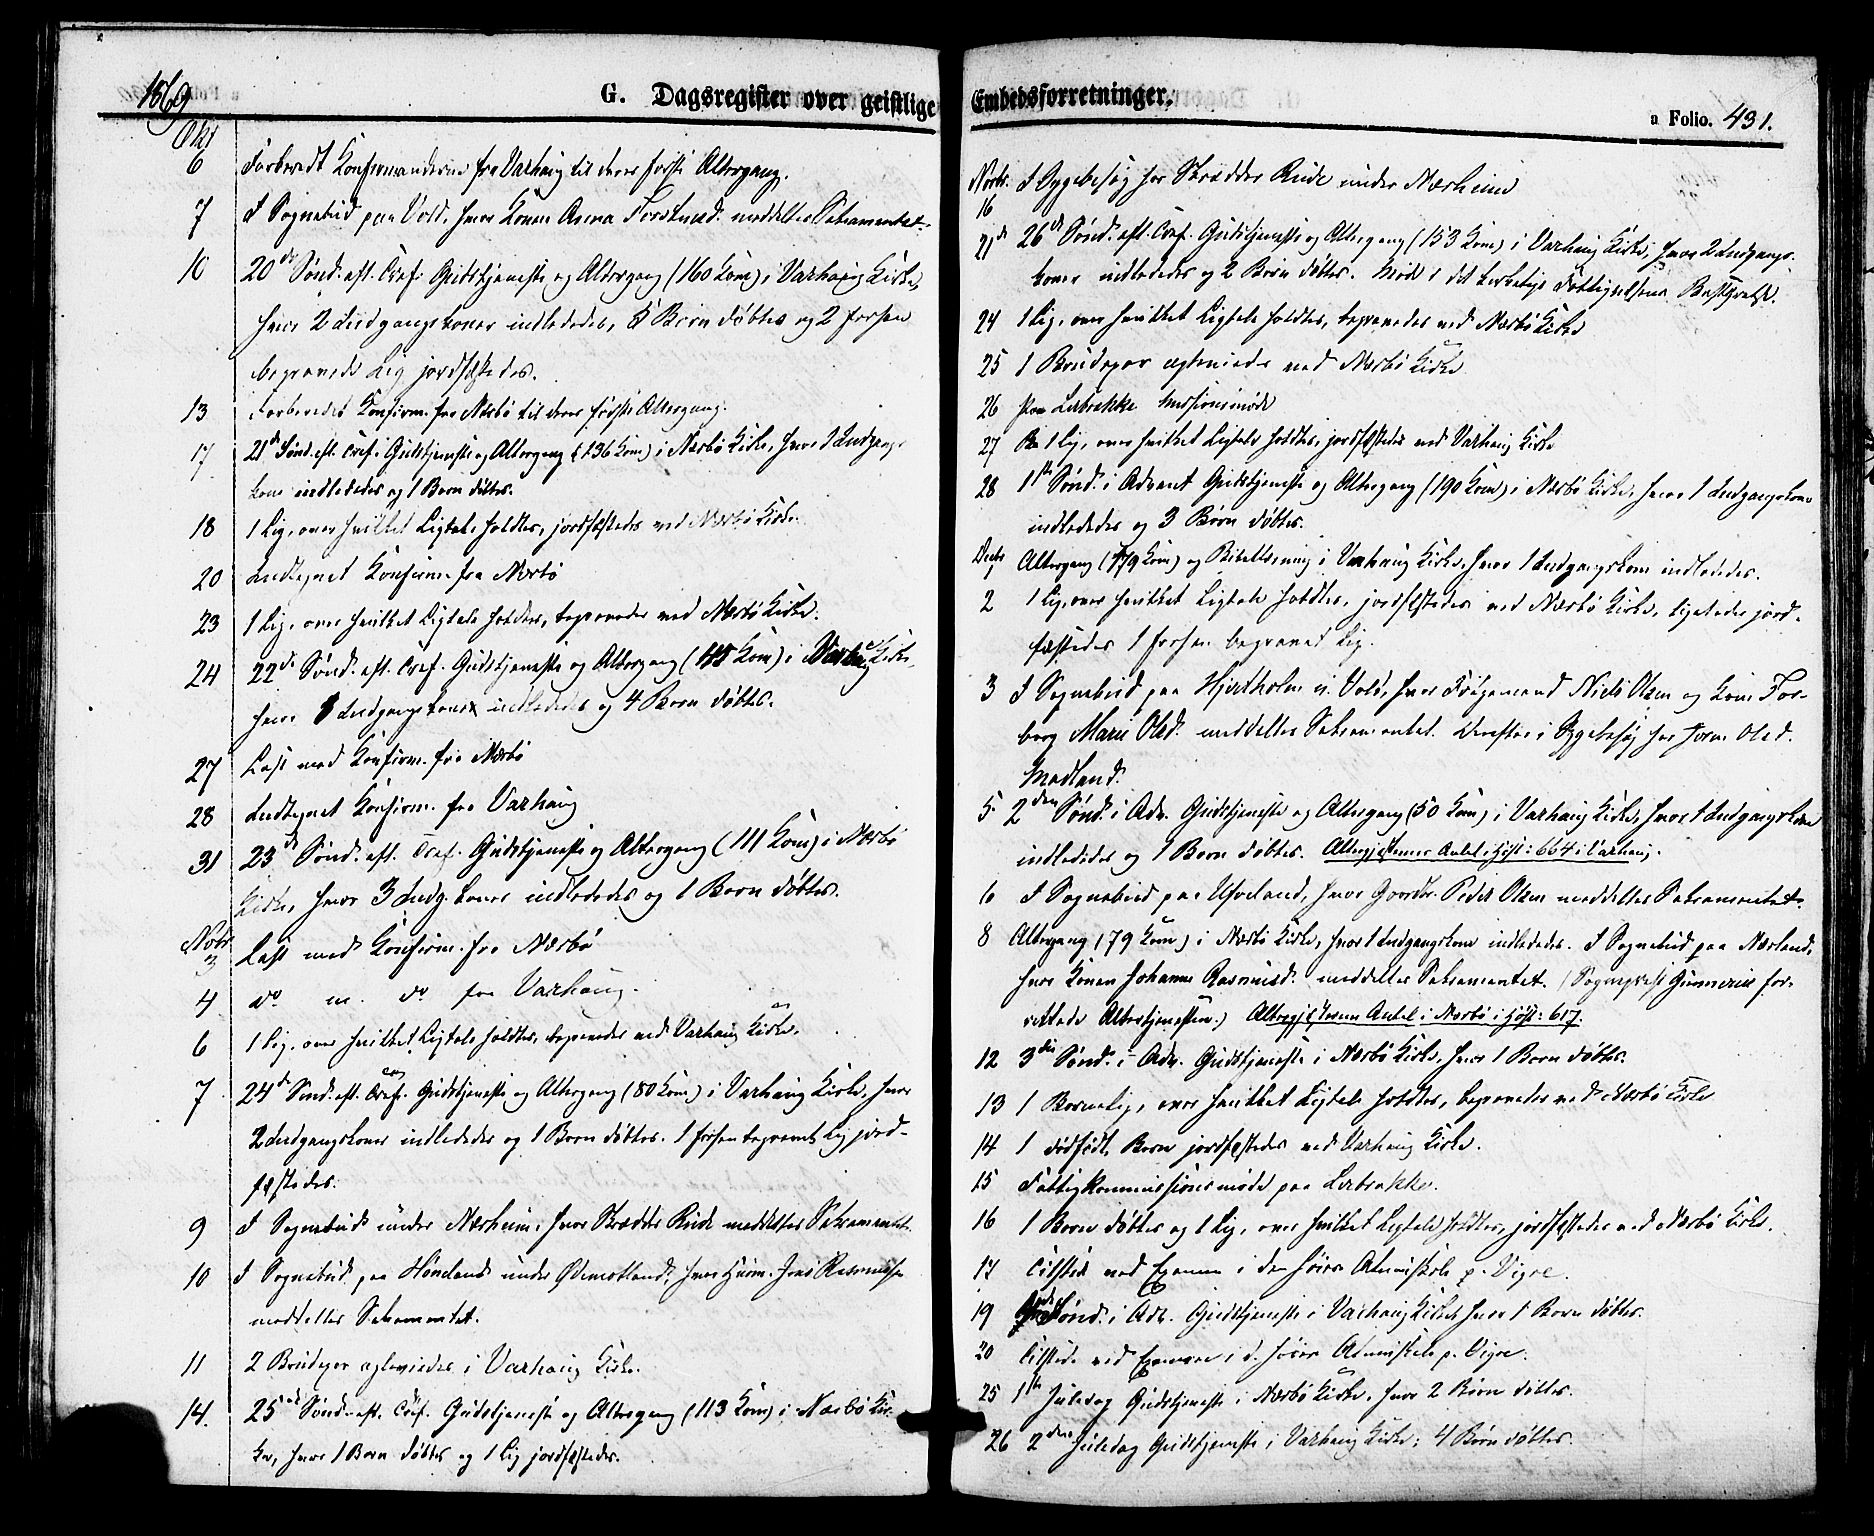 1869
G. Dagsregister over geistlige
Okt
6 Forberedt Konfirmanderne fra Varhaug til deres første Altergang.
7 I Sognebud paa Vold, hvor Konen Anna Torstensd. meddeltes Sakramentet.
10 20de Sønd. eft. Tref. Gudstjeneste og Altergang (160 Kom) i Varhaug Kirke,
hvor 2 Indgangskoner indlededes, 5 Børn døbtes og 2 forhen
begravede Lig jordfæstedes.
13 Forberedt Konfirm. fra Nærbø til deres første Altergang.
17 21de Sønd. eft. Tref. Gudstjeneste og Altergang (136 Kom) i Nærbø Kirke, hvor 1 Indgangs-
kone indlededes og 1 Barn døbtes.
18 1 Lig, over hvilket Ligtale holdtes, jordfæstedes ved Nærbø Kirke.
20 Indtegnet Konfirm. fra Nærbø
23 1 Lig, over hvilket Ligtale holdtes, begravedes ved Nærbø Kirke.
24 22de Sønd. eft. Tref. Gudstjeneste og Altergang (145 Kom) i Varhaug Kirke,
hvor Indgangskoner indlededes og 4 Børn døbtes.
27 Læst med Konfirm. fra Nærbø
28 Indtegnet Konfirm. fra Varhaug
31 23de Sønd. eft. Tref. Gudstjeneste og Altergang (111 Kom) i Nærbø
Kirke, hvor 3 Indg. koner indlededes og 1 Barn døbtes.
Novbr.
3 Læst med Konfirm. fra Nærbø
4 do m. do fra Varhaug.
6 1 Lig, over hvilket Ligtale holdtes, begravedes ved Varhaug Kirke.
7 24de Sønd. eft. Tref. Gudstjeneste og Altergang (80 Kom) i Varhaug Kirke, hvor
2 Indgangskoner indlededes og 1 Barn døbtes. 1 forhen begravet Lig jord-
fæstedes.
9 I Sognebud under Nærheim, hvor Skrædder Rude meddeltes Sakramentet.
10 I Sognebud paa Høneland under Ødemotland, hvor Huusm. Jens Rasmussen
meddeltes Sakramentet.
11 2 Brudepar egteviedes i Varhaug Kirke.
14. 25de Sønd. eft. Tref. Gudstjeneste og Altergang (113 Kom) i Nærbø Kir-
ke, hvor 1 Barn døbtes og 1 Lig jordfæstedes.
Embedsforretninger.
a Folio. 431.
Novbr. I Sygebesøg hos Skrædder Rude under Nærheim
16
21de 26de Sønd. eft. Tref. Gudstjeneste og Altergang (153 Kom) i Varhaug Kirke, hvor 2 Indgangs-
koner indlededes og 2 Børn døbtes. Møde i det Fattigvæsens Bestyrelse.
24 1 Lig, over hvilket Ligtale holdtes, begravedes ved Nærbø Kirke
25 1 Brudepar egteviedes ved Nærbø Kirke
26 Paa Lerbrække Missionsmøde
27 1 Lig, over hvilket Ligtale holdtes, jordfæstedes ved Varhaug Kirke
28 1ste Sønd. i Advent Gudstjeneste og Altergang (190 Kom) i Nærbø Kirke, hvor 1 Indgangskone
indlededes og 3 Børn døbtes.
Decbr
1 Altergang (179 Kom) og Bibellæsning i Varhaug Kirke, hvor 1 Indgangskone indlededes.
2 1 Lig, over hvilket Ligtale holdtes, jordfæstedes ved Nærbø Kirke, ligeledes jord-
fæstedes 1 forhen begravet Lig.
3 I Sognebud paa Hjertholm u. Vold, hvor Niels Olsen og Kone Tor-
borg Marie Olsd. meddeltes Sakramentet. Derefter i Sygebesøg hos Olsd.
Madland.
5. 2den Sønd. i Adv. Gudstjeneste og Altergang (50 Kom) i Varhaug Kirke, hvor 1 Indgangskone
indlededes og 1 Barn døbtes. Altergjæsternes Antal i Høst: 664 i Varhaug.
6 I Sognebud paa Ueland, hvor Gaardbr. Peder Olsen meddeltes Sakramentet.
8 Altergang (79 Kom) i Nærbø Kirke, hvor 1 Indgangskone indlededes. I Sognebud paa Nærland,
hvor Konen Johanne Rasmusd. meddeltes Sakramentet. (Sogneprest Gunnerius for-
rettede Altertjenesten.) Altergjæsternes Antal i Nærbø i Høst: 617.
12 3die Sønd. i Adv. Gudstjeneste i Nærbø Kirke, hvor 1 Barn døbtes.
13 1 Barnelig, over hvilket Ligtale holdtes, begravedes ved Nærbø Kirke
14 1 dødfødt Barn jordfæstedes ved Varhaug Kirke.
15 Fattigkommissionsmøde paa Lerbrække.
16 1 Barn døbtes og 1 Lig, over hvilket Ligtale holdtes, jordfæstedes ved Nærbø Kirke.
17 Tilstede ved Examen i den høiere Almuskole p. Vigre.
19 4de Sønd. i Adv. Gudstjeneste i Varhaug Kirke, hvor 1 Barn døbtes.
20 Tilstede ved Examen i d. høiere Almuskole p. Vigre.
25 1ste Juledag Gudstjeneste i Nærbø Kirke, hvor 2 Børn døbtes.
26 2den Juledag Gudstjeneste i Varhaug Kirke; 4 Børn døbtes.